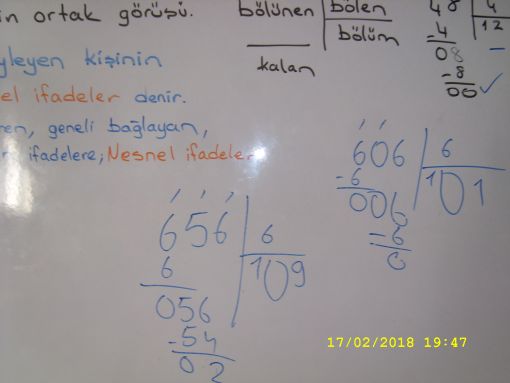 in ortak görüşü.
yleyen kişinin
el ifadeler denir.
ren, geneli bağlayan,
ifadelere; Nesnel ifadeler
bölünen bölen
bölüm
kalan
48 4
-4 12
08
-8
00
606 6
-6 101
006
-6
0
656 6
6 109
056
-54
02
17/02/2018 19:47